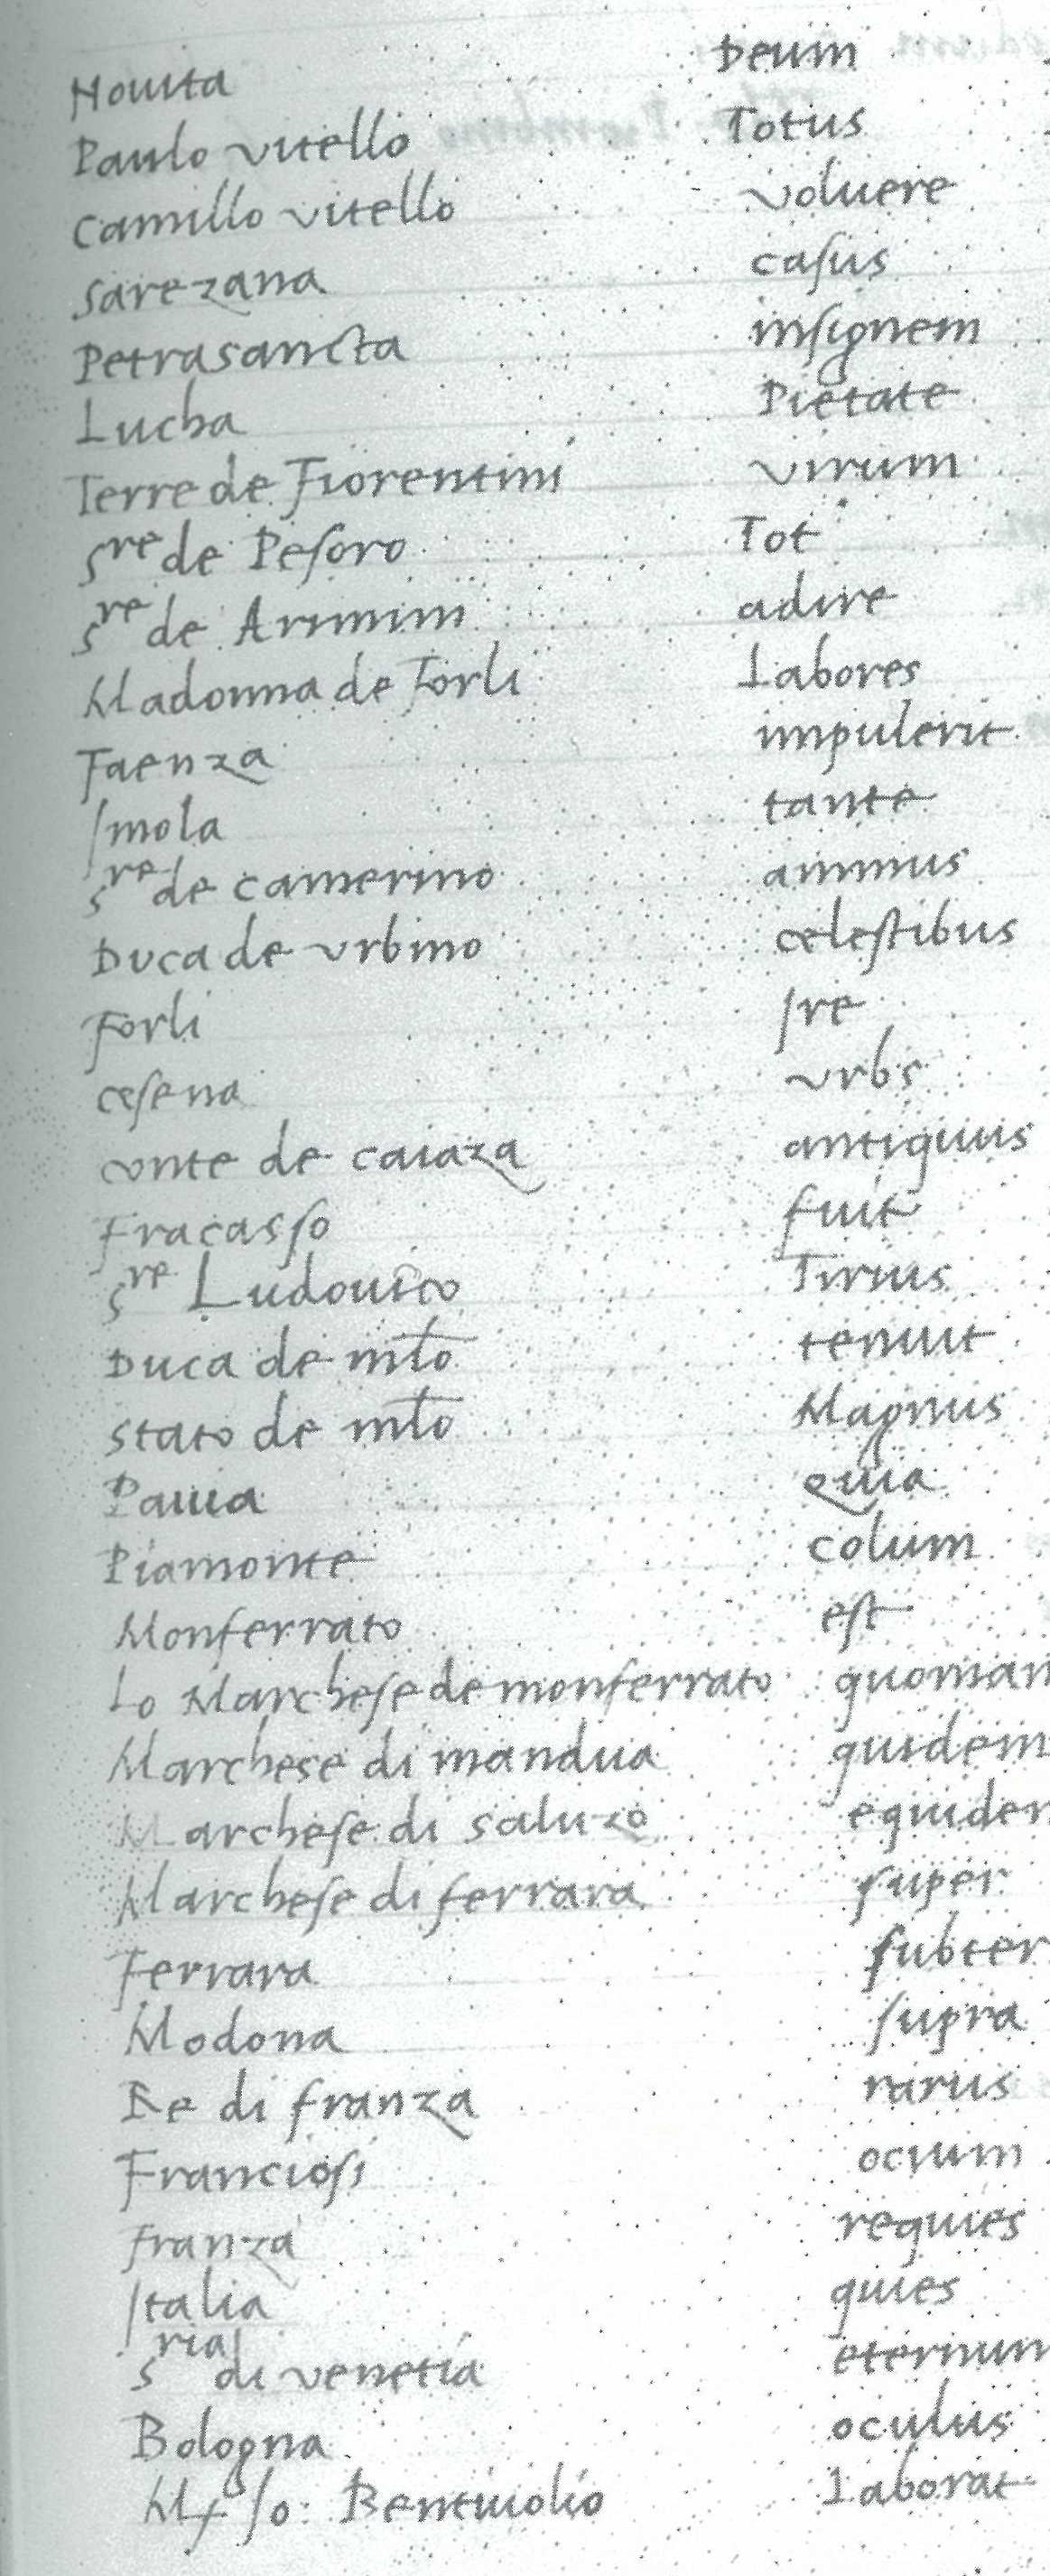 Nouita Deum
Paulo vitello Totus
Camillo vitello voluere
Sarezana casus
Petrasancta insignem
Lucha Pietate
Terre de Fiorentini virum
Sre de Pesoro Tot
Sre de Arimini adire
Madonna de Forli Labores
Faenza impulerit
Imola tante
Sre de camerino animus
Duca de vrbino celestibus
Forli Ire
cesena vrbs
conte de caiaza antiquus
Fracasso fuit
Sre Ludouico Tirius
Duca de mlo tenuit
stato de mlo Magnus
Pauia Quia
Piamonte colum
Monferrato est
Lo Marchese de monferrato quoniam
Marchese di mandua quidem
Marchese di saluzo equidem
Marchese di ferrara super
Ferrara subter
Modona supra
Re di franza rarus
Franciosi ocium
franza requies
Italia quies
Sria di venetia eternum
Bologna oculus
Mr Jo: Bentiuolio Laborat